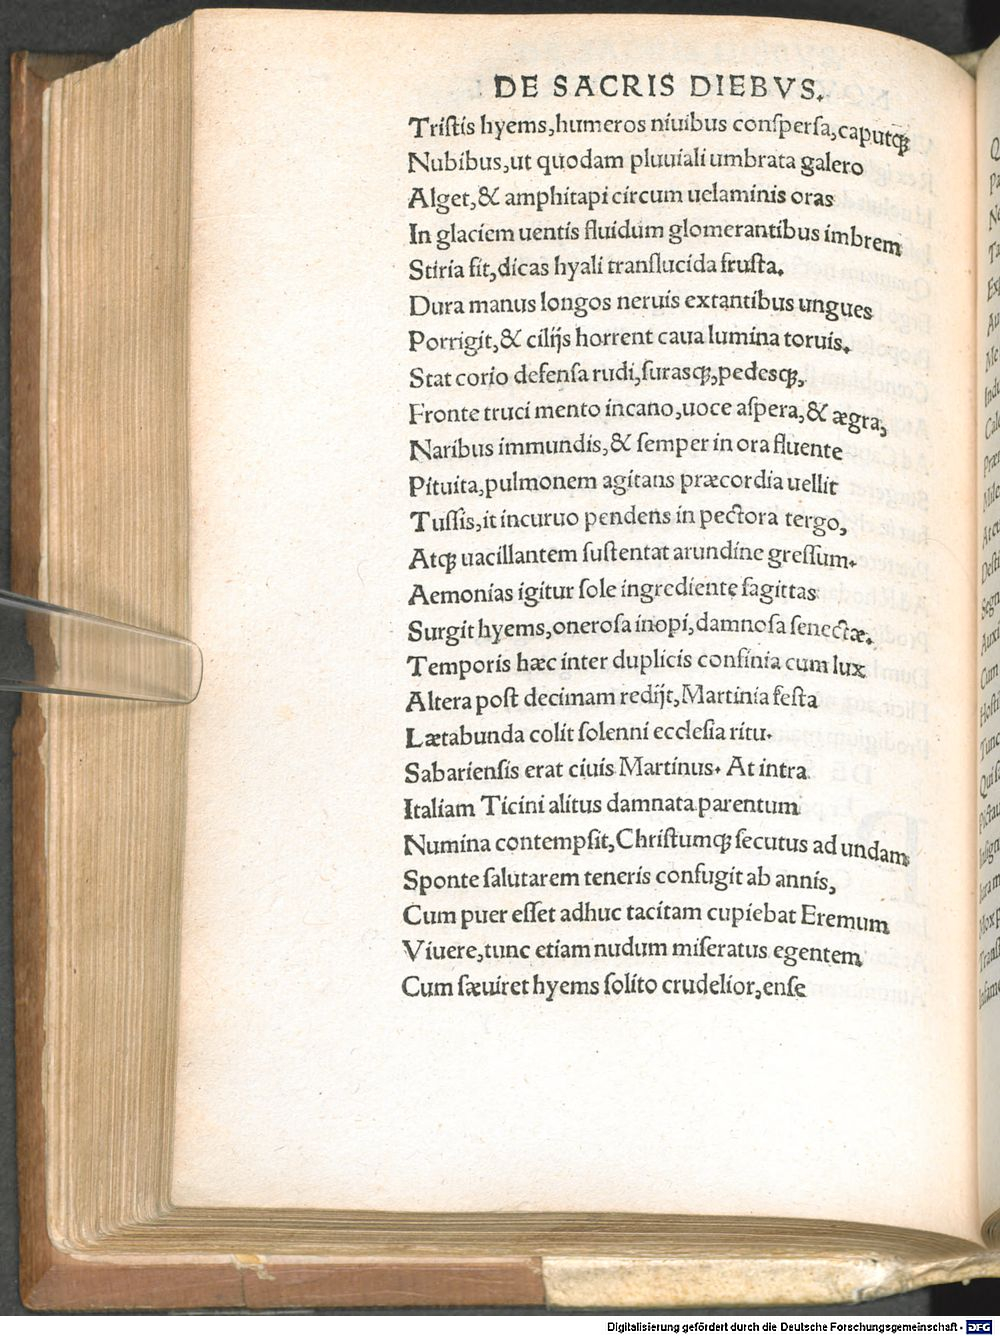 DE SACRIS DIEBVS.
Triſtis hyems,humeros niuibus conſperſa,caputqꝫ
Nubibus,ut quodam pluuiali umbrata galero
Alget,& amphitapi circum uelaminis oras
In glaciem uentis fluidum glomerantibus imbrem
Stiria fit,dicas hyali tranſlucida fruſta.
Dura manus longos neruis extantibus ungues
Porrigit,& cilijs horrent caua lumina toruis.
Stat corio defenſa rudi,ſurasqꝫ,pedesqꝫ,
Fronte truci mento incano,uoce aſpera,& ægra,
Naribus immundis,& ſemper in ora fluente
Pituita,pulmonem agitans præcordia uellit
Tuſſis,it incuruo pendens in pectora tergo,
Atqꝫ uacillantem ſuſtentat arundine greſſum.
Aemonias igitur ſole ingrediente ſagittas
Surgit hyems,oneroſa inopi,damnoſa ſenectæ.
Temporis hæc inter duplicis confinia cum lux
Altera poſt decimam redijt,Martinia feſta
Lætabunda colit ſolenni eccleſia ritu.
Sabarienſis erat ciuis Martinus. At intra
Italiam Ticini alitus damnata parentum
Numina contempſit,Chriſtumqꝫ ſecutus ad undam
Sponte ſalutarem teneris confugit ab annis,
Cum puer eſſet adhuc tacitam cupiebat Eremum
Viuere,tunc etiam nudum miſeratus egentem
Cum ſæuiret hyems ſolito crudelior,enſe
Digitalisierung gefördert durch die Deutsche Forschungsgemeinschaft - DFG